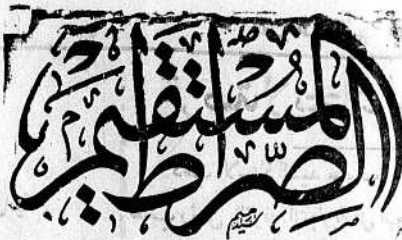 الصِّرٰط المُستَقيم